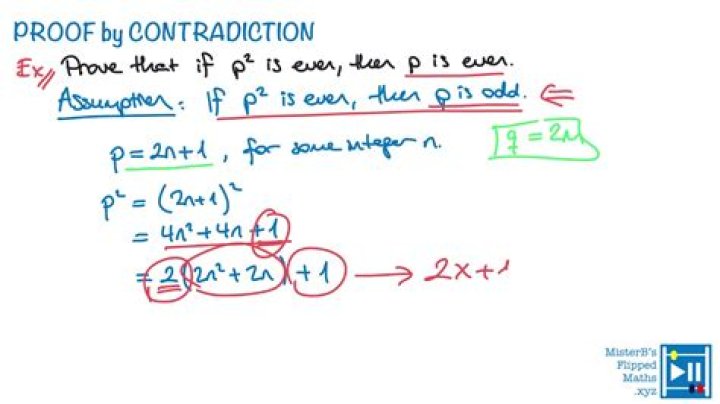 PROOF by CONTRADICTION
Ex// Prove that if p² is even, then p is even.
Assumption: If p² is even, then p is odd. ⇐
p = 2n+1, for some integer n.
q = 2n
p² = (2n+1)²
= 4n² + 4n + 1
= 2(2n² + 2n) + 1 → 2x+1
MisterB's
Flipped
Maths
.xyz